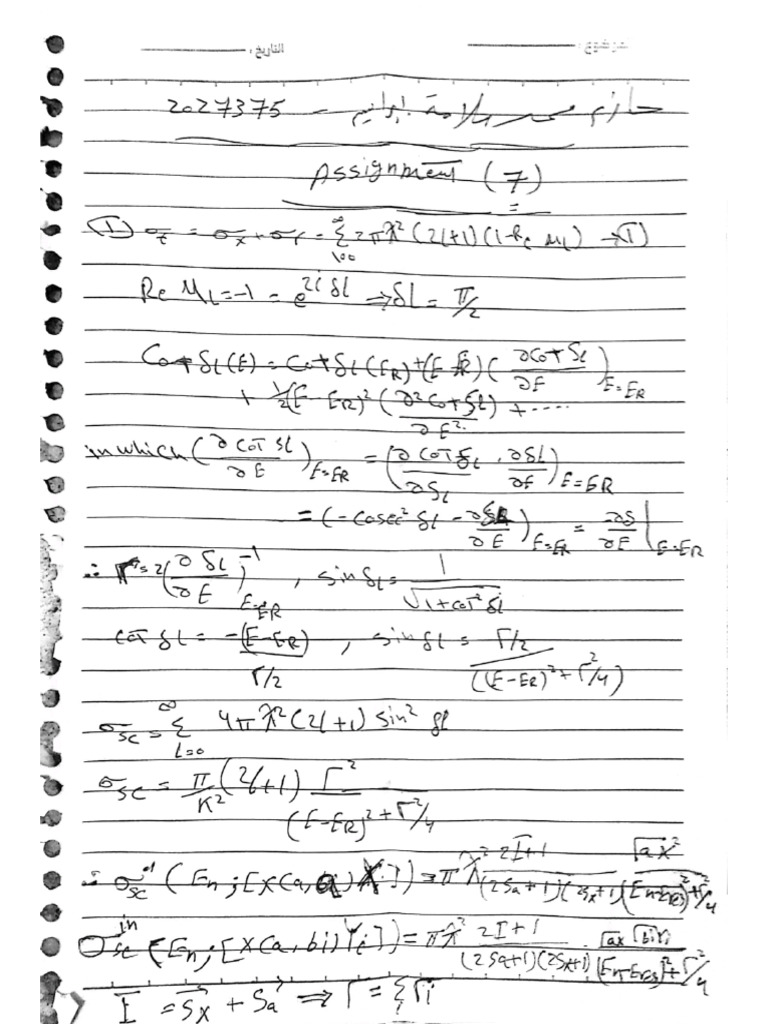 التاريخ :    موضوع :
حازم محمد سلامة ابراهيم - 2027375
Assignment (7)
① σt = σx + σr = Σ_{l=0}^{∞} 2πƛ² (2l+1) (1-Re Ml) → ①
Re Ml = -1 = e^{2iδl} ⇒ δl = π/2
Cot δl(E) = Cot δl(ER) + (E-ER) (∂Cot δl/∂E)_{E=ER}
+ 1/2 (E-ER)² (∂²Cot δl/∂E²) + ....
in which (∂cot δl/∂E)_{E=ER} = (∂cot δl/∂δl . ∂δl/∂E)_{E=ER}
= (-cosec² δl - ∂δl/∂E)_{E=ER} = -∂δ/∂E |_{E=ER}
∴ Γ = 2(∂δl/∂E)^{-1}_{E=ER} , sin δl = 1/√(1+cot² δl)
cot δl = -(E-ER)/(Γ/2) , sin δl = Γ/2 / ((E-ER)²+Γ²/4)
σsc = Σ_{l=0}^{∞} 4πƛ² (2l+1) sin² δl
σsc = π/K² (2l+1) Γ²/((E-ER)²+Γ²/4)
∴ σsc^{el} (En; [X(a,a)X]) = πƛ² (2I+1)/((2Sa+1)(2Sx+1)) Γax²/((En-Eres)²+Γ²/4)
σsc^{in} (En; [X(a,bi)Yi]) = πƛ² (2I+1)/((2Sa+1)(2Sx+1)) Γax ΓbiYi/((En-Eres)²+Γ²/4)
I = Sx + Sa ⇒ Γ = Σi Γi